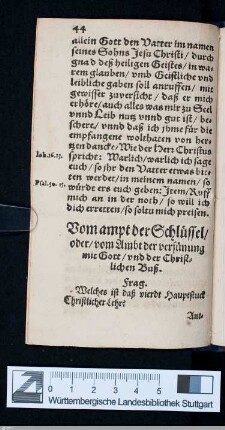 44
allein Gott den Vatter im namen
seines Sohns Jesu Christi/ durch
gnad deß heiligen Geistes/ in wa-
rem glauben/ vmb Geistliche vnd
leibliche gaben soll anruffen/ mit
gewisser zuversicht/ daß er mich
erhöre/ auch alles was mir zu Seel
vnnd Leib nutz vnnd gut ist/ be-
schere/ vnnd daß ich jhme für die
empfangene wolthaten von her-
tzen dancke/ Wie der Herr Christus
Joh. 16. 23.
spricht: Warlich/ warlich ich sage
euch/ so jhr den Vatter etwas bit-
ten werdet/ in meinem namen/ so
Psal. 50. 15.
würdt ers euch geben: Item/ Ruff
mich an in der noth/ so will ich
dich erretten/ so soltu mich preisen.
Vom ampt der Schlüssel/
oder/ vom Ambt der versünung
mit Gott/ vnd der Christ-
lichen Buß.
Frag.
Welches ist daß vierdt Hauptstuck
Christlicher Lehr?
Ant-
0 1 2 3 4 5
Württembergische Landesbibliothek Stuttgart